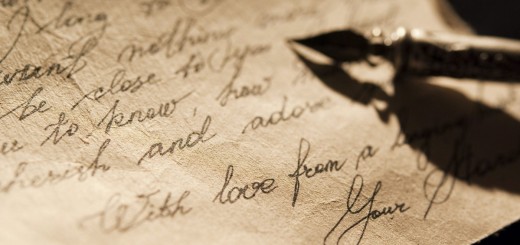 long to
want nothing
be close to you
to know, how
cherish and adore
With love from a
Your